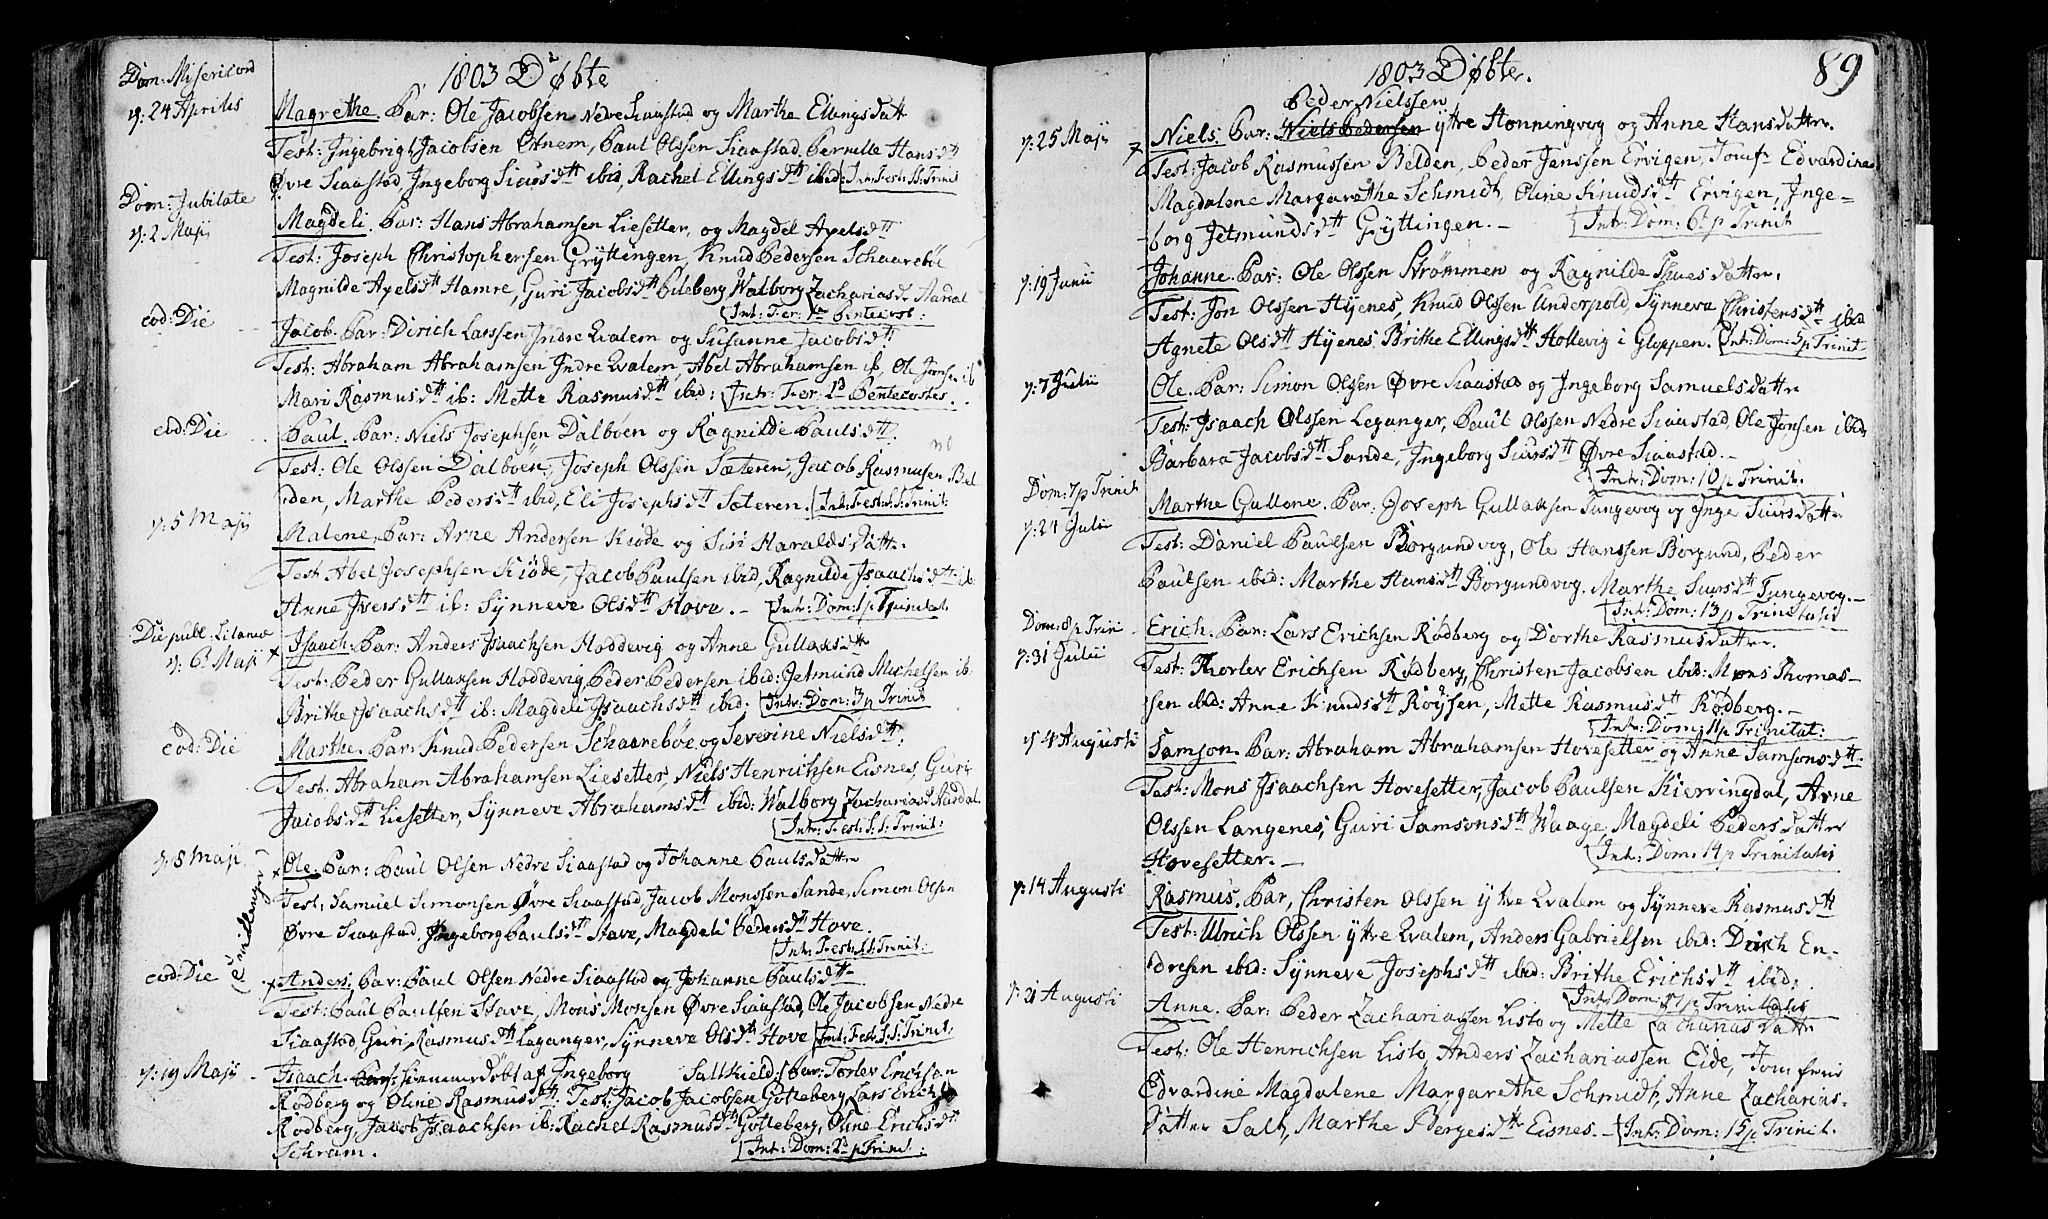 1803 Døbte
Dom: Misericord
d: 24 Aprilis
Magrethe. Par: Ole Jacobsen Nedre Siaastad og Marthe Ellings datt
Test: Ingebrigt Jacobsen Ørnem, Paul Olssen Siaastad, Pernille Hans dtt
Øvre Siaastad, Ingeborg Siurs dtt ibid, Rachel Ellings dtt ibid: Int: Fest: SS: Trinit
Dom: Jubilate
d: 2 Maji
Magdeli. Par: Hans Abrahamsen Liesetter, og Magdel Axels dtt
Test: Joseph Christophersen Gryttingen, Knud Pedersen Schaarebøe
Magnilde Axels dtt Hamre, Guri Jacobs dtt Bileberg Walborg Zacharias dr Aardal
Int: Fer: 1a Pentecost:
eod: Die
Jacob. Par: Dirich Larssen Indre Qvalem og Susanne Jacobs dtt
Test: Abraham Abrahamsen Indre Qvalem, Abel Abrahamsen ib, Ole Jonsen ib
Mari Rasmus dtt ib: Mette Rasmus dtt ibid: Int: Fer: Pentecostes.
eod: Die
Paul. Par: Niels Josephsen Dalbøen og Ragnilde Pauls dtt.
Test: Ole Olssen Dalbøen, Joseph Olssen Sæteren, Jacob Rasmusen Bel
den, Marthe Peders dtt ibid, Eli Josephs dtt Sæteren. Int: Festo SS: Trinit:
d: 5 Maji
Malene, Par: Arne Andersen Kiøde og Siri Haralds datter.
Test Abel Josephsen Kiøde, Jacob Paulsen ibid, Ragnilde Isaachs dtt ib:
Anne Ivers dtt ib: Synneve Ols dtt Hove. – Int: Dom: 1 p Trinitat
Die publ: Litaniæ
d: 6 Maji
Isaach. Par: Anders Isaachsen Hoddevig og Anne Gullaks dtt
Test: Peder Gullaksen Hoddevig, Peder Pedersen ibid: Jetmund Michelsen ib:
Brithe Isaachs dtt ib: Magdeli Isaachs dtt ibid: Int: Dom: 3 p Trinit
eod: Die
Marthe. Par: Knud Pedersen Schaarebøe og Severine Niels dtt:
Test. Abraham Abrahamsen Liesetter, Niels Henrichsen Eisnes, Guri
Jacobs dtt Liesetter, Synneve Abrahams dtt ibid: Walborg Zacharias dr Aardal
Int: Fest: S.S: Trinit:
d: 8 Maji
(Tvillinger)
Ole. Par: Paul Olsen Nedre Siaastad og Johanne Pauls datter
Test: Samuel Simonsen Øvre Siaastad, Jacob Monssen Sande, Simon Olsen
Øvre Siaastad, Ingeborg Pauls dtt Stave, Magdeli Peders dtt Hove.
Int: Fest: SS: Trinit:
eod: Die
Anders, Par: Paul Olsen Nedre Siaastad og Johanne Pauls dtt
Test: Paul Paulsen Stave, Mons Monsen Øvre Siaastad, Ole Jacobsen Nedre
Siaastad Guri Rasmus dtt Leganger, Synneve Ols dtt Hove Int: Fest: S.S: Trinit:
d: 19 Maji
Isaach. hiemmedøbt af Ingeborg Saltkield: Par: Torlev Erichsen
Rødberg og Oline Rasmus dtt. Test: Jacob Jacobsen Gotteberg, Lars Erichs
Rødberg, Jacob Isaachsen ib: Rachel Rasmus dtt Gotteberg, Oline Erichs dtt
Schram.
Int: Dom: 2 p Trinit:
1803 Døbte.
89
d: 25 Maji
Peder Nielssen
Niels. Par: Niels Pedersen ytre Honningvog og Anne Hans datter.
Test: Jacob Rasmussen Belden, Peder Janssen Ervigen, Jomf: Edvardine
Magdalene Margarethe Schmidt, Oline Knuds dtt Ervigen, Inge-
borg Jetmunds dtt Gryttingen. – Int: Dom: 6 p Trinit
d: 19 Junii
Johanne. Par: Ole Olssen Strømmen og Ragnilde Thues datter.
Test: Jon Olssen Hyenes, Knud Olssen Underpold, Synneva Christens dtt ibid
Agnete Ols dtt Hyenes, Brithe Ellings dtt Hollevig i Gloppen. Int: Dom: 5 p Trinit
d: 7 Julii
Ole. Par: Simon Olsen Øvre Siaastad og Ingeborg Samuels datter
Test: Isaach Olssen Leganger, Paul Olssen Nedre Siaastad, Ole Jonsen ibid
Barbara Jacobs dtt Sande, Ingeborg Siurs dtt Øvre Siaastad. –
Int: Dom: 10 p Trinit:
Dom: 7 p Trinit
d: 24 Julii
Marthe Gullone. Par: Joseph Gullaksen Tungevog og Inge Siurs datter
Test: Daniel Paulsen Borgundvog, Ole Hanssen Borgund, Peder
Paulsen ibid: Marthe Hans dtt Borgundvog. Marthe Siurs dtt Tungevog. –
Int: Dom: 13 p Trinitatis
Dom: 8 p Trini
d: 31 Julii
Erich. Par: Lars Erichsen Rødberg og Dorthe Rasmus datter.
Test: Thorlev Erichsen Rødberg, Christen Jacobsen ibid: Mons Thomas-
sen ibid: Anne Knuds dtt Røysen, Mette Rasmus dtt Rødberg. –
Int: Dom: 11 p Trinitat:
d: 4 Augusti
Samson. Par: Abraham Abrahamsen Hovesetter og Anne Samsons dtt.
Test: Mons Isaachsen Hovesetter, Jacob Paulsen Kierringdal, Arne
Olssen Langenes, Guri Samsons dtt Waage, Magdeli Peders datter
Hovesetter. – Int: Dom: 14 p Trinitatis
d: 14 Augusti
Rasmus. Par, Christen Olssen ytre Qvalem og Synneve Rasmus dtt
Test: Ulrich Olssen ytre Qvalem, Anders Gabrielsen ibid: Dirich En-
dresen ibid: Synneve Josephs dtt ibid: Brithe Erichs dtt ibid:
Int: Dom: 17 p Trinitatis
d: 21 Augusti
Anne. Par: Peder Zachariasen Listo og Mette Zacharias datter
Test: Ole Henrichsen Listo, Anders Zachariassen Eide, Jomfrue
Edvardine Magdalene Margarethe Schmidt, Anne Zacharias-
datter Salt, Marthe Berges dtr Eisnes. – Int: Dom: 15 p Trinit.